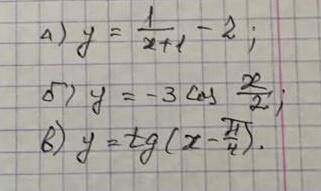 а) y = 1/(x+1) - 2;
б) y = -3 cos x/2;
в) y = tg(x - π/4).